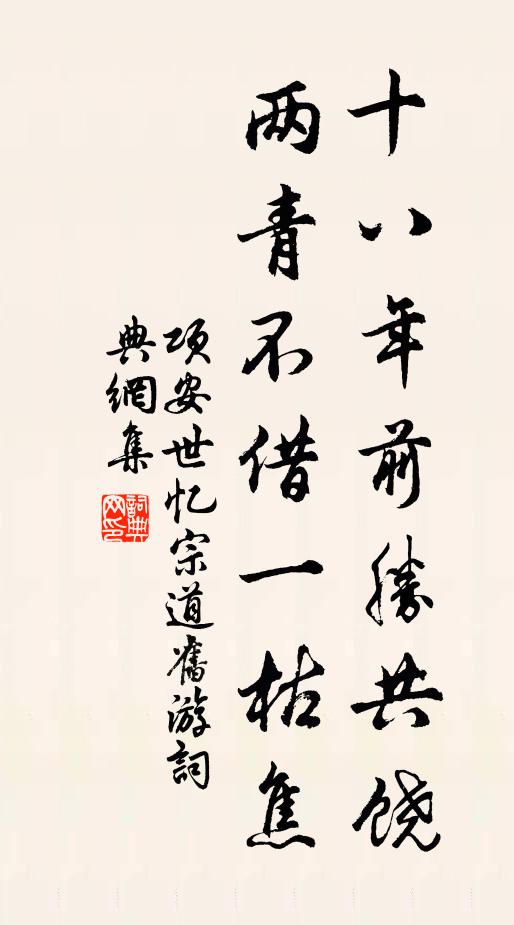 十八年前勝共饶
两青不借一枯焦
项安世忆宗道舊游詞
典網集
詞典
网印